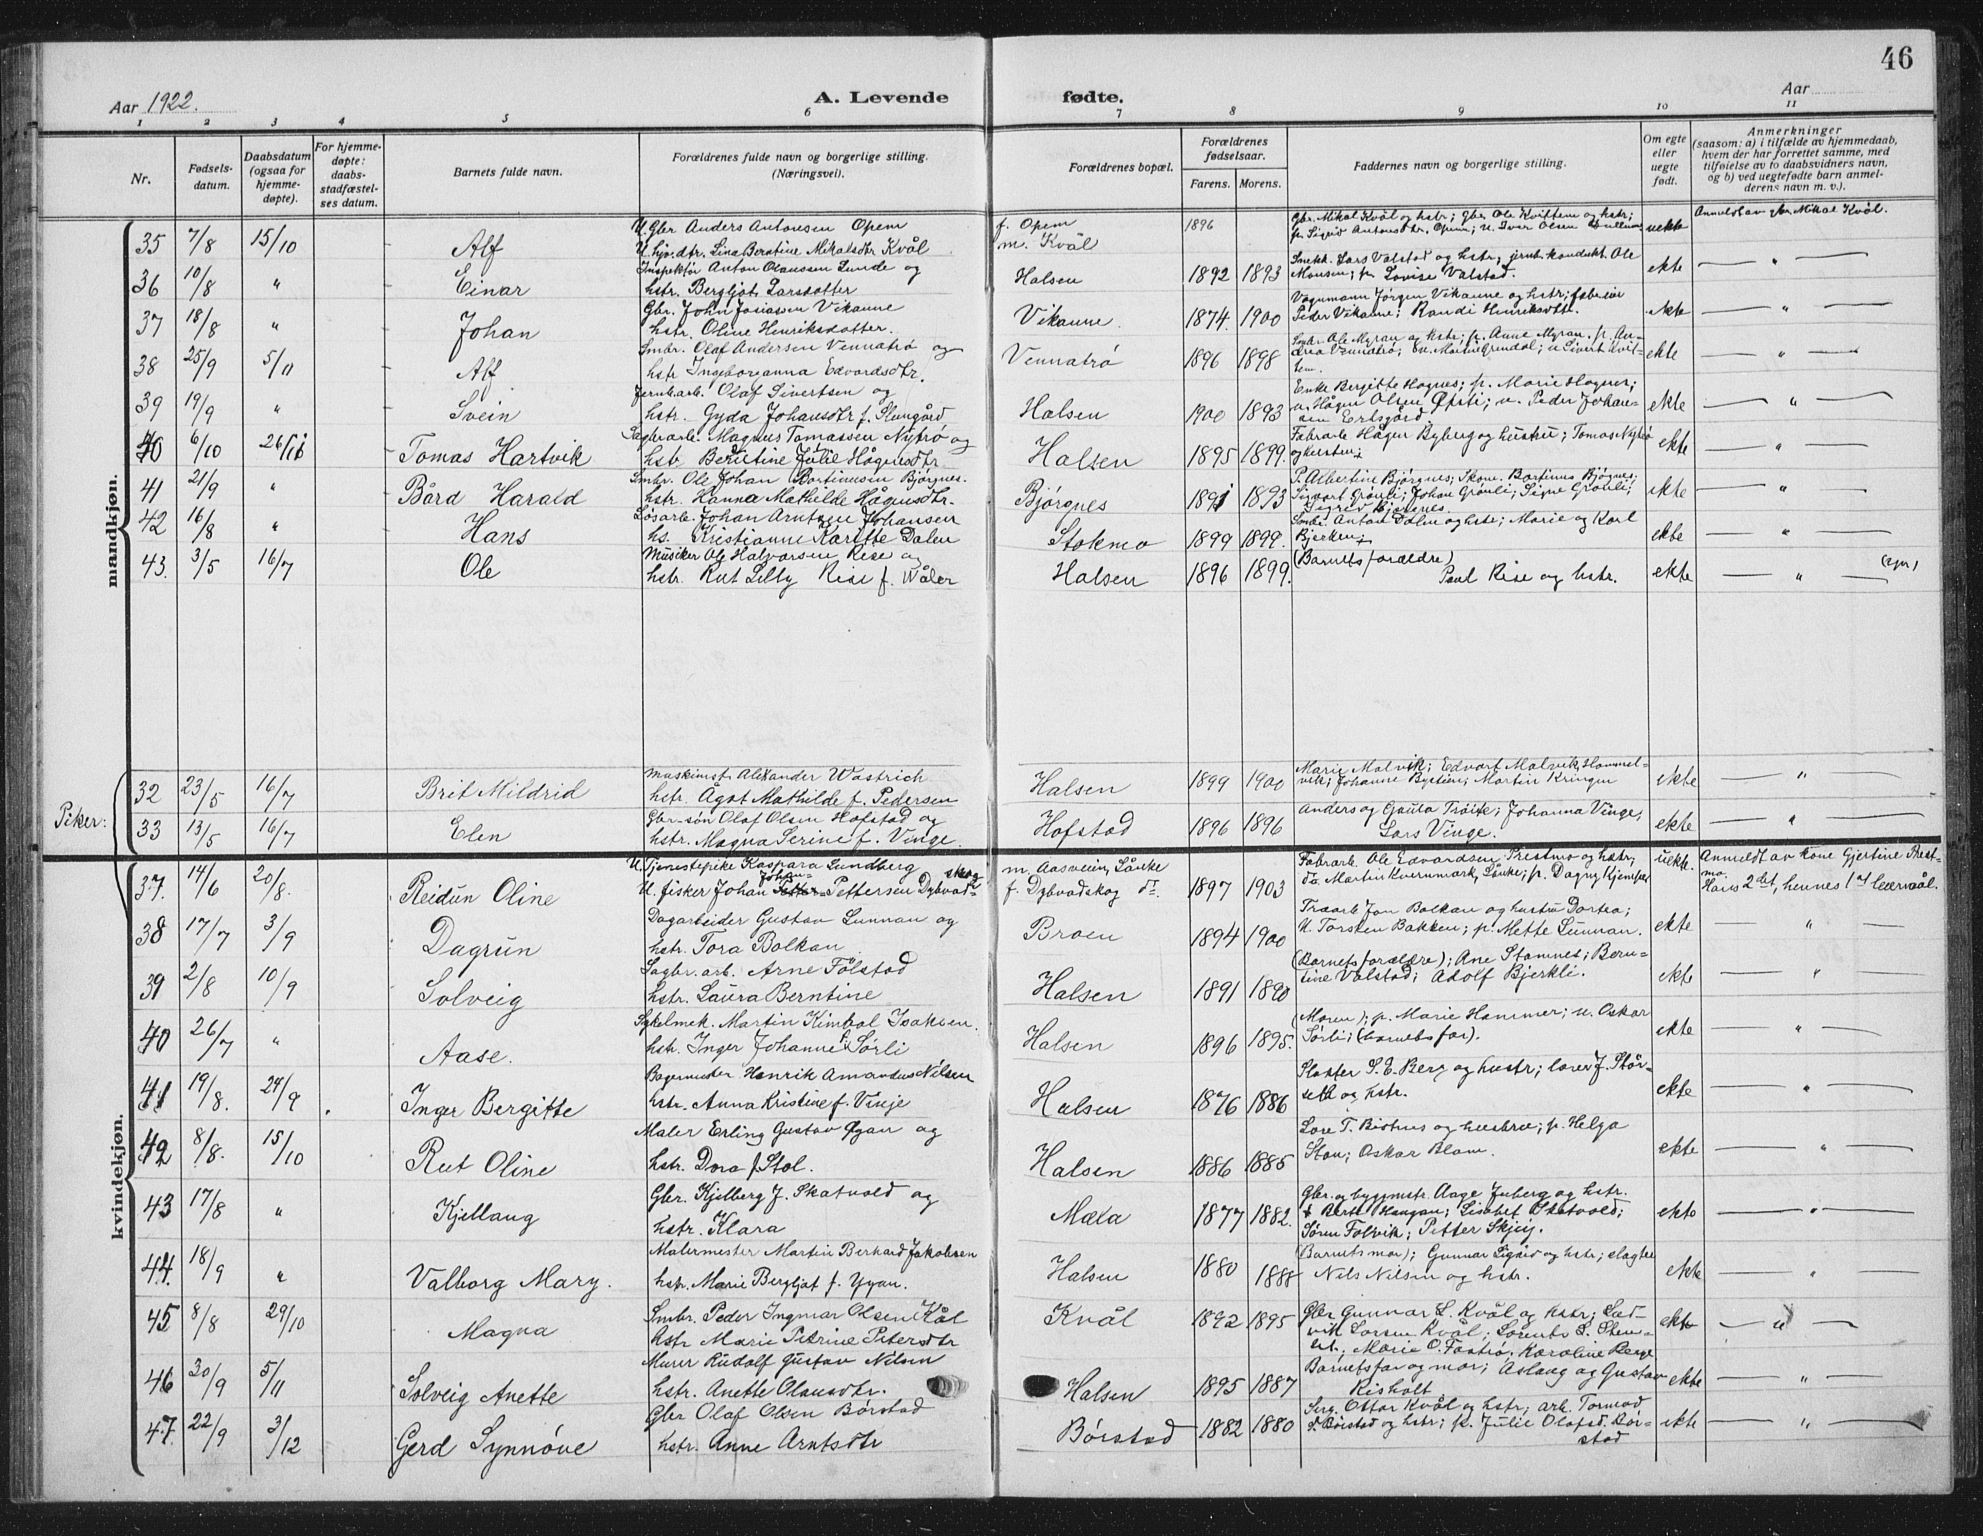 46
Aar 1922.
A. Levende fødte.
Aar
1 2 3 4 5 6 7 8 9 10 11
Nr.
Fødsels-
datum.
Daabsdatum
(ogsaa for
hjemme-
døpte).
For hjemme-
døpte:
daabs-
stadfæstel-
ses datum.
Barnets fulde navn.
Forældrenes fulde navn og borgerlige stilling.
(Næringsvei).
Forældrenes bopæl.
Forældrenes
fødselsaar.
Farens. Morens.
Faddernes navn og borgerlige stilling.
Om egte
eller
uegte
født.
Anmerkninger
(saasom: a) i tilfælde av hjemmedaab,
hvem der har forrettet samme, med
tilføielse av to daabsvidners navn,
og b) ved uegtefødte barn anmel-
derens navn m. v.).
mandkjøn.
35 7/8 15/10 Alf U. Gbr Anders Antonsen Opem f. Opem 1896 Gbr. Mikal Kvål og hstr; gbr. Ole Kvittem og hstr; uekte Anmeldt av gbr. Mikal Kvål.
U. hjv. dtr. Lina Berntine Mikalsdtr Kvål m. Kvål p. Sigrid Antonsdtr. Opem; u. Ivar Olsen
36 10/8 " Einar Inspektør Anton Olaussen Lunde og Halsen 1892 1893 Lars Valstad og hstr; jernb. kondukt. Ole ekte — " —
hstr. Bergljot Larsdatter Monsen; p. Lovise Valstad.
37 18/8 " Johan Gbr. John Josiassen Vikanne Vikanne. 1874. 1900 Vognmann Jørgen Vikanne og hstr; ekte — " —
hstr. Oline Henriksdatter. Peder Vikanne; Randi Henriksdtr.
38 25/9 5/11 Alf Smbr. Olaf Andersen Vennatrø og Vennatrø 1896 1898 Smbr. Ole Myran og hstr; p. Anne Myran. p. An- ekte — " —
hstr Ingeborganna Edvardsdtr. drea Vennatrø; Grendal; u. Sivert Kvit-
tem.
39 19/9 " Svein Jernb.arb. Olaf Sivertsen og Halsen 1900 1893 Enke Bergitte Hognes; p. Marie Hognes; ekte — " —
hstr. Gyda Johansdtr f. Slungård u. Hågen Olsen Opsti; u. Peder Johan-
sen Ertsgård
40 6/10 26/11 Tomas Hartvik Sagbr.arb. Magnus Tomassen Nytrø og Halsen 1895 1899. Fabrarb Hågen Byberg og hustru; Tomas Nytrø ekte — " —
hstr Berntine Julie Hågensdtr og kersten;
41 21/9 " Bård Harald Smbr. Ole Johan Bortinussen Bjørgnes. Bjørgnes 1891 1893 P. Albertine Bjørgnes; Skom. Bortinus Bjørgnes; ekte — " —
hstr. Hanna Mathilde Hågensdtr. Sigvart Grønli; Johan Grønli; Signe Grønli;
Sigrid Bjørgnes.
42 16/8 " Hans Løsarb. Johan Arntsen Johansen Stokmo 1899 1899. Smbr. Anton Dalen og hstr; Marie og Karl ekte — " —
hs. Kristianne Karitte Dalen Bjerken;
43. 3/5 16/7 Ole Musiker Ole Halvorsen Rise og Halsen 1896 1899. (Barnets forældre) ekte — " —
hstr. Rut Lilly Rise f. Wåler Paul Rise og hstr.
Piker:
32 23/5 16/7 Brit Mildrid Maskinist Alexander Wastrich Halsen 1899 1900 Marie Malvik; Edvart Malvik, Hommel- ekte "
hstr. Ågot Mathilde f. Pedersen vik; Johanne Bystien; Martin Kringen
33 13/5 16/7 Elen Gbr-søn Olaf Olsen Hofstad og Hofstad 1896 1896 Anders og Gauta Trøite; Johanna Vinge; ekte — " —
hstr. Magna Serine f. Vinge. Lars Vinge.
kvindekjøn.
37. 14/6 20/8. Reidun Oline U. Tjenestepike Kaspara Sundberg m. Aasveien, Lånke 1897 1903 Fabrarb. Ole Edvardsen Prestmo og hstr; uekte. Anmeldt av kone Gjertine Prest-
U. fisker Johan Petter Johan Pettersen Dybvad- skog f. Dybvadskog dt. Martin Kvernmark, Lånke; p. Dagny mo.
Hans 2det, hennes 1st leiermål.
38 17/7 3/9 Dagrun Dagarbeider Gustav Lunnan og Broen 1894 1900 Traarb Jon Bolkan og hustru Dortea; ekte — " —
hstr. Tora Bolkan U. Torsten Bakken; p. Mette Lunnan.
39 2/8 10/9 Solveig Sagbr. arb. Arne Følstad Halsen 1891 1890 (Barnets forældre); Ane Stamnes; Bern- ekte — " —
hstr. Laura Berntine tine Valstad; Adolf Bjerkli.
40 26/7 " Aase. Sykelmek. Martin Kimbal Isaksen. Halsen 1896 1895. (Moren); p. Marie Hammer; u. Oskar ekte — " —
hstr. Inger Johanne f. Sørli Sørli; (barnets far).
41 19/8. 24/9 Inger Bergitte Bagermester Henrik Amandus Nilsen Halsen 1876 1886 Slakter S. E. Berg og hustr; lærer J. Stør- ekte — " —
hstr. Anna Kristine f. Vinje seth og hstr.
42 8/8. 15/10 Rut Oline Maler Erling Gustav Ygan og Halsen 1886 1885 Lære T. Bishus og hustru; p. Helga ekte — " —
hstr. Dora f. Stol. Stan; Oskar Blom.
43 17/8 " Kjellaug Gbr. Kjelberg J. Skatvold og Mæla 1877 1882. Gbr. og byggmstr. Aage Juberg og hstr. ekte — " —
hstr. Klara Haugan; Lisabet Skatvold;
Søren Folvik; Petter Skjeig.
44. 18/9 " Valborg Mary. Malermester Martin Berhard Jakobsen Halsen 1880 1888 (Barnets mor); Gunnar Ligaid og hstr; slagter ekte — " —
hstr. Marie Bergljot f. Ygan. Nils Nilsen og hstr.
45 8/8 29/10 Magna Smbr. Peder Ingmar Olsen Kål Kvål 1892 1895 Gbr Gunnar L. Kvål og hstr; Lud- ekte — " —
hstr Marie Petrine Petersdtr vik Larsen Kvål; Lorents S.
Marie O. Fastrø, Karoline Berge
46 20/9 5/11 Solveig Anette Murer Rudolf Gustav Nilsen Halsen 1895 1887 Barnets far og mor; Aslaug og Gustav ekte — " —
hstr. Anette Olausdtr. Risholt
47. 22/9 3/12 Gerd Synnøve Gbr Olaf Olsen Børstad Børstad 1882 1880 Serg. Ottar Kvål og hstr; arb. Tormod ekte — " —
hstr. Anne Arntsdtr Børstad og hstr; p. Julie Olafsd. Bør-
stad